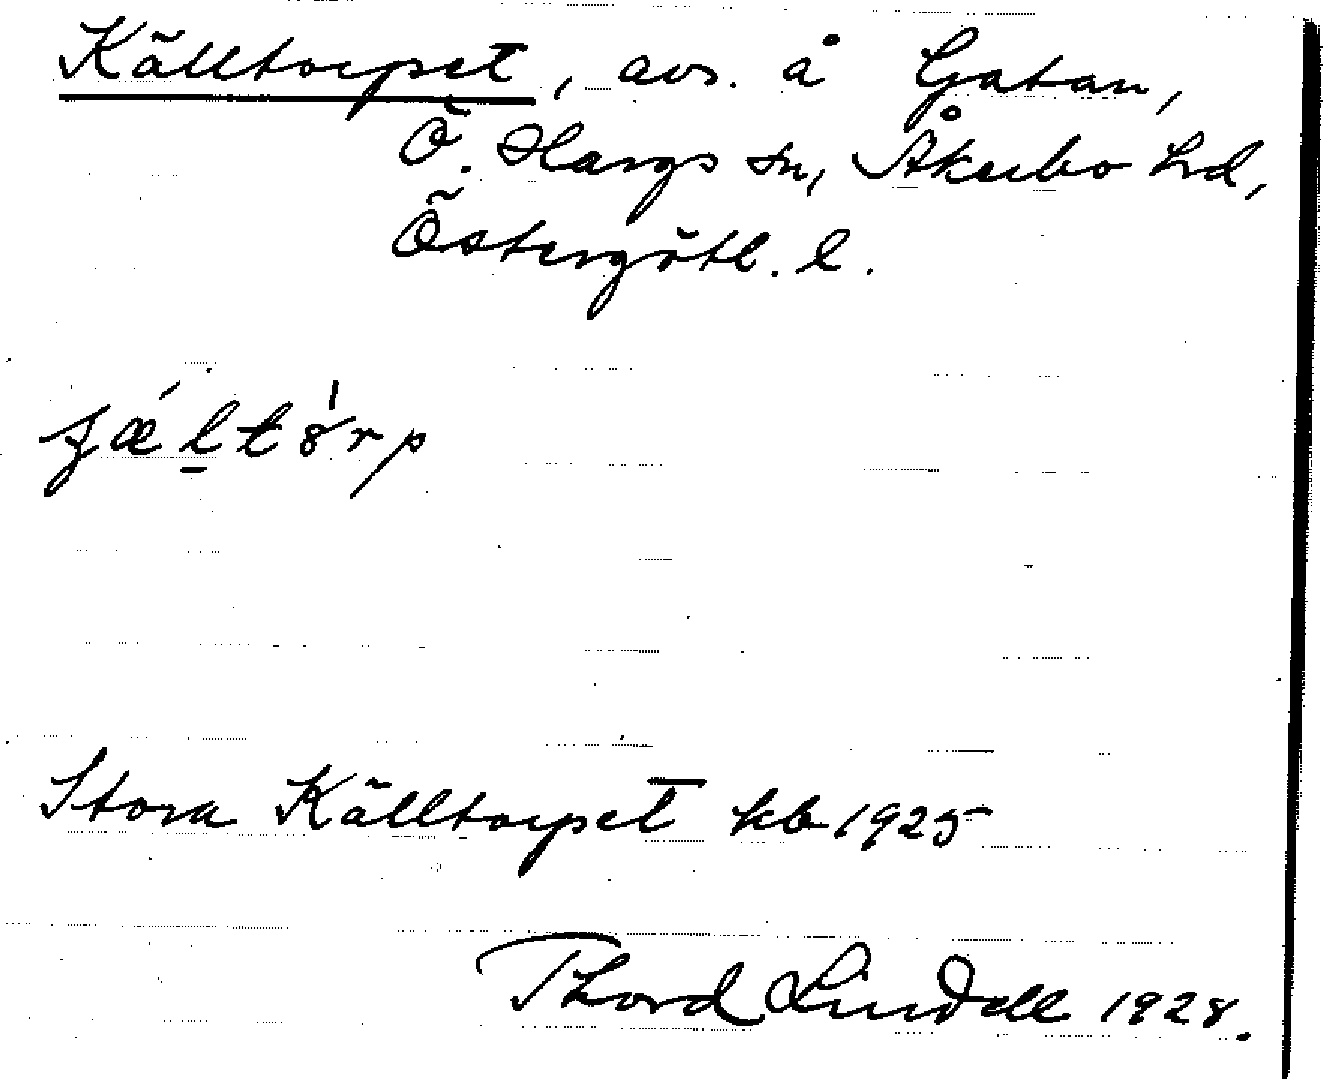 Källtorpet, avs. å Gatan,
Ö. Hargs sn, Åkerbo hd,
Östergötl. l.
Stora Källtorpet kb 1925
Thord Lindell 1928.